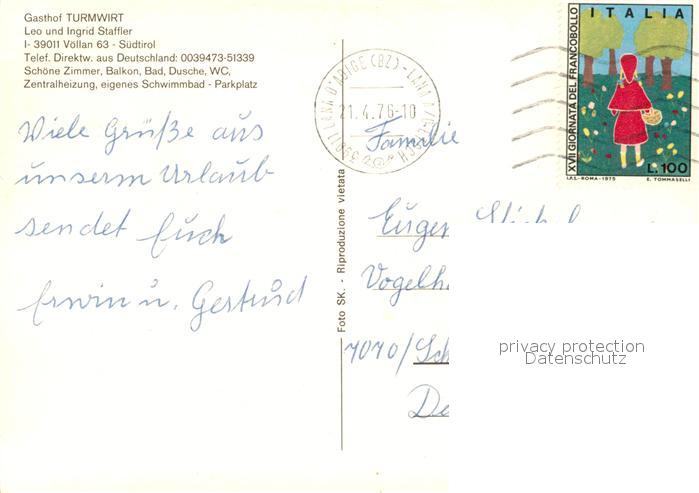 Gasthof TURMWIRT
Leo und Ingrid Staffler
I- 39011 Völlan 63 - Südtirol
Telef. Direktw. aus Deutschland: 0039473-51339
Schöne Zimmer, Balkon, Bad, Dusche, WC,
Zentralheizung, eigenes Schwimmbad - Parkplatz
Viele Grüße aus
unserm Urlaub
sendet Euch
Erwin u. Gertrud
Foto SK. - Riproduzione vietata
39011 LANA D'ADIGE (BZ) - LANA
21.4.76-10
ITALIA
XVII GIORNATA DEL FRANCOBOLLO
L.100
I.P.S.-ROMA-1975 E. TOMMASELLI
Familie
Eugen
Vogelh
7070/Sch
De
privacy protection
Datenschutz